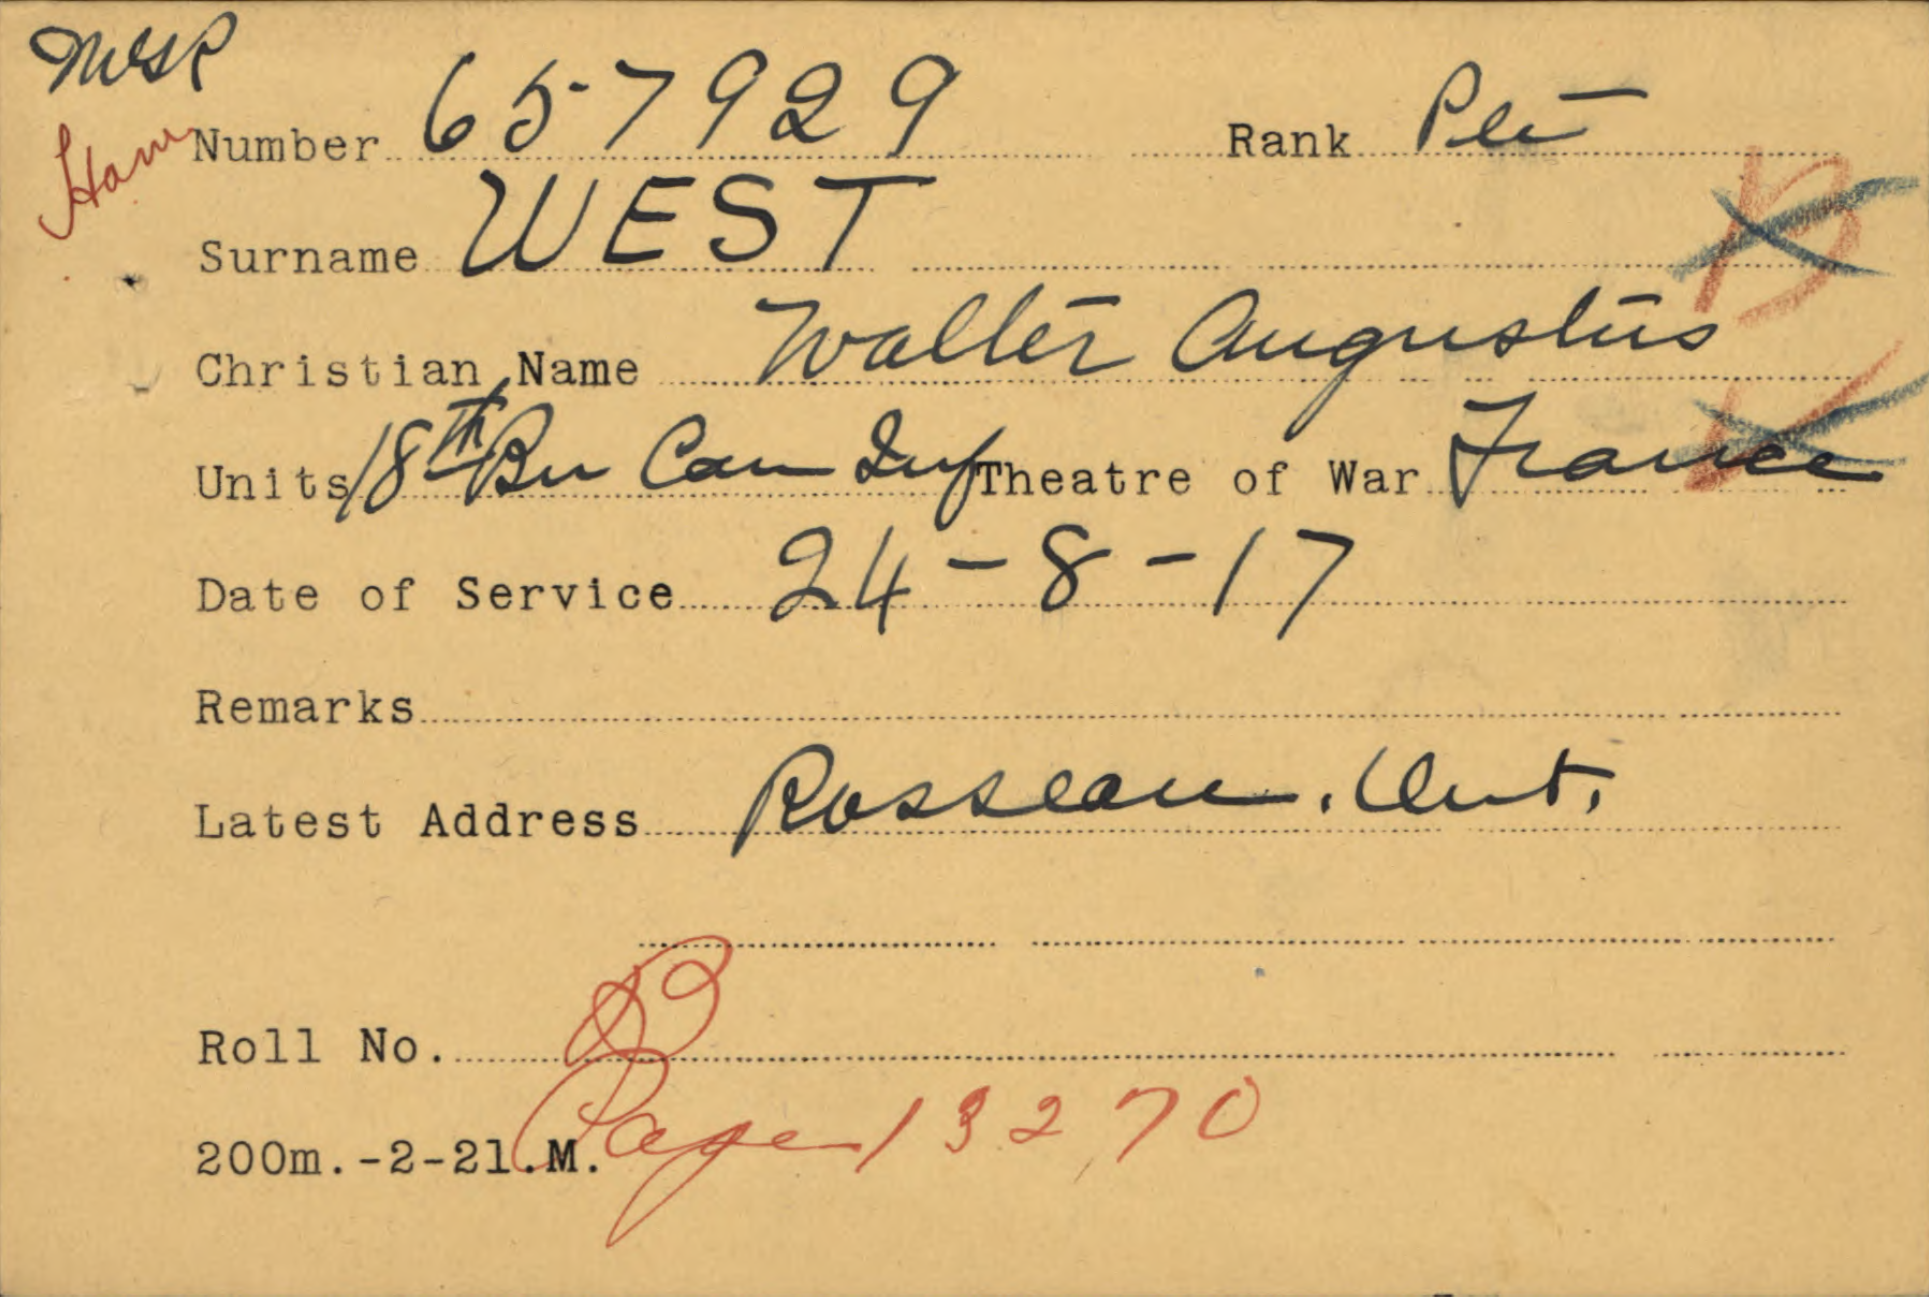 Number 657929 Rank Pte
Surname WEST
Christian Name Walter Augustus
Units 18th Bn Can Inf Theatre of War France
Date of Service 24-8-17
Remarks
Latest Address Rosseau. Ont.
Roll No. B
Page 13270
200m.-2-21.M.